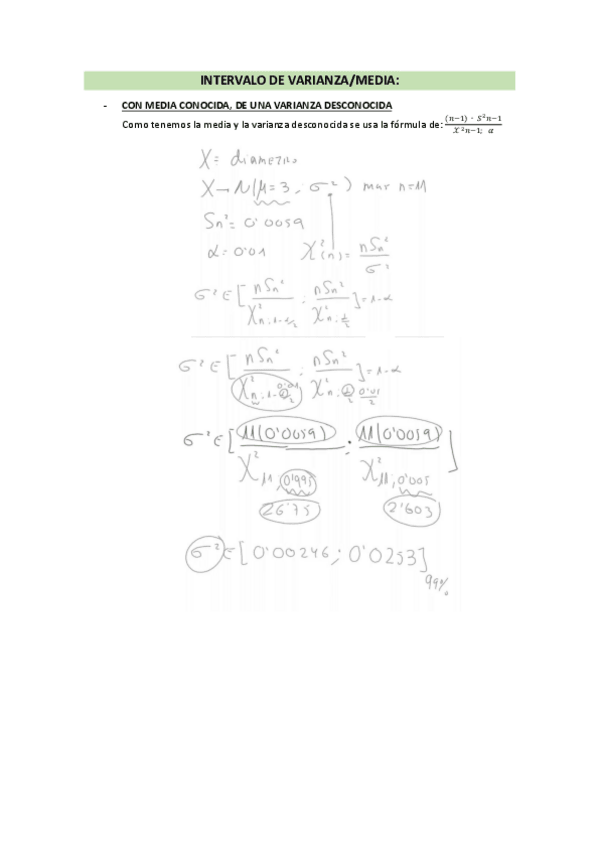 INTERVALO DE VARIANZA/MEDIA:
- CON MEDIA CONOCIDA, DE UNA VARIANZA DESCONOCIDA
Como tenemos la media y la varianza desconocida se usa la fórmula de: (n−1) · S²n−1 / X²n−1; α
X = diametro
X → N(μ = 3 ; σ²) n=11
Sn² = 0'0059
α = 0'01 X²(n) = nSn² / σ²
σ² ∈ [ nSn² / X²n;1-α/2 ; nSn² / X²n;α/2 ] = 1-α
σ² ∈ [ nSn² / X²n;1-0'01/2 ; nSn² / X²n;α/2 0'01/2 ] = 1-α
σ² ∈ [ 11(0'0059) / X²11;0'995 ; 11(0'0059) / X²11;0'005 ]
26'75 2'603
σ² ∈ [0'00246 ; 0'0253]
99%